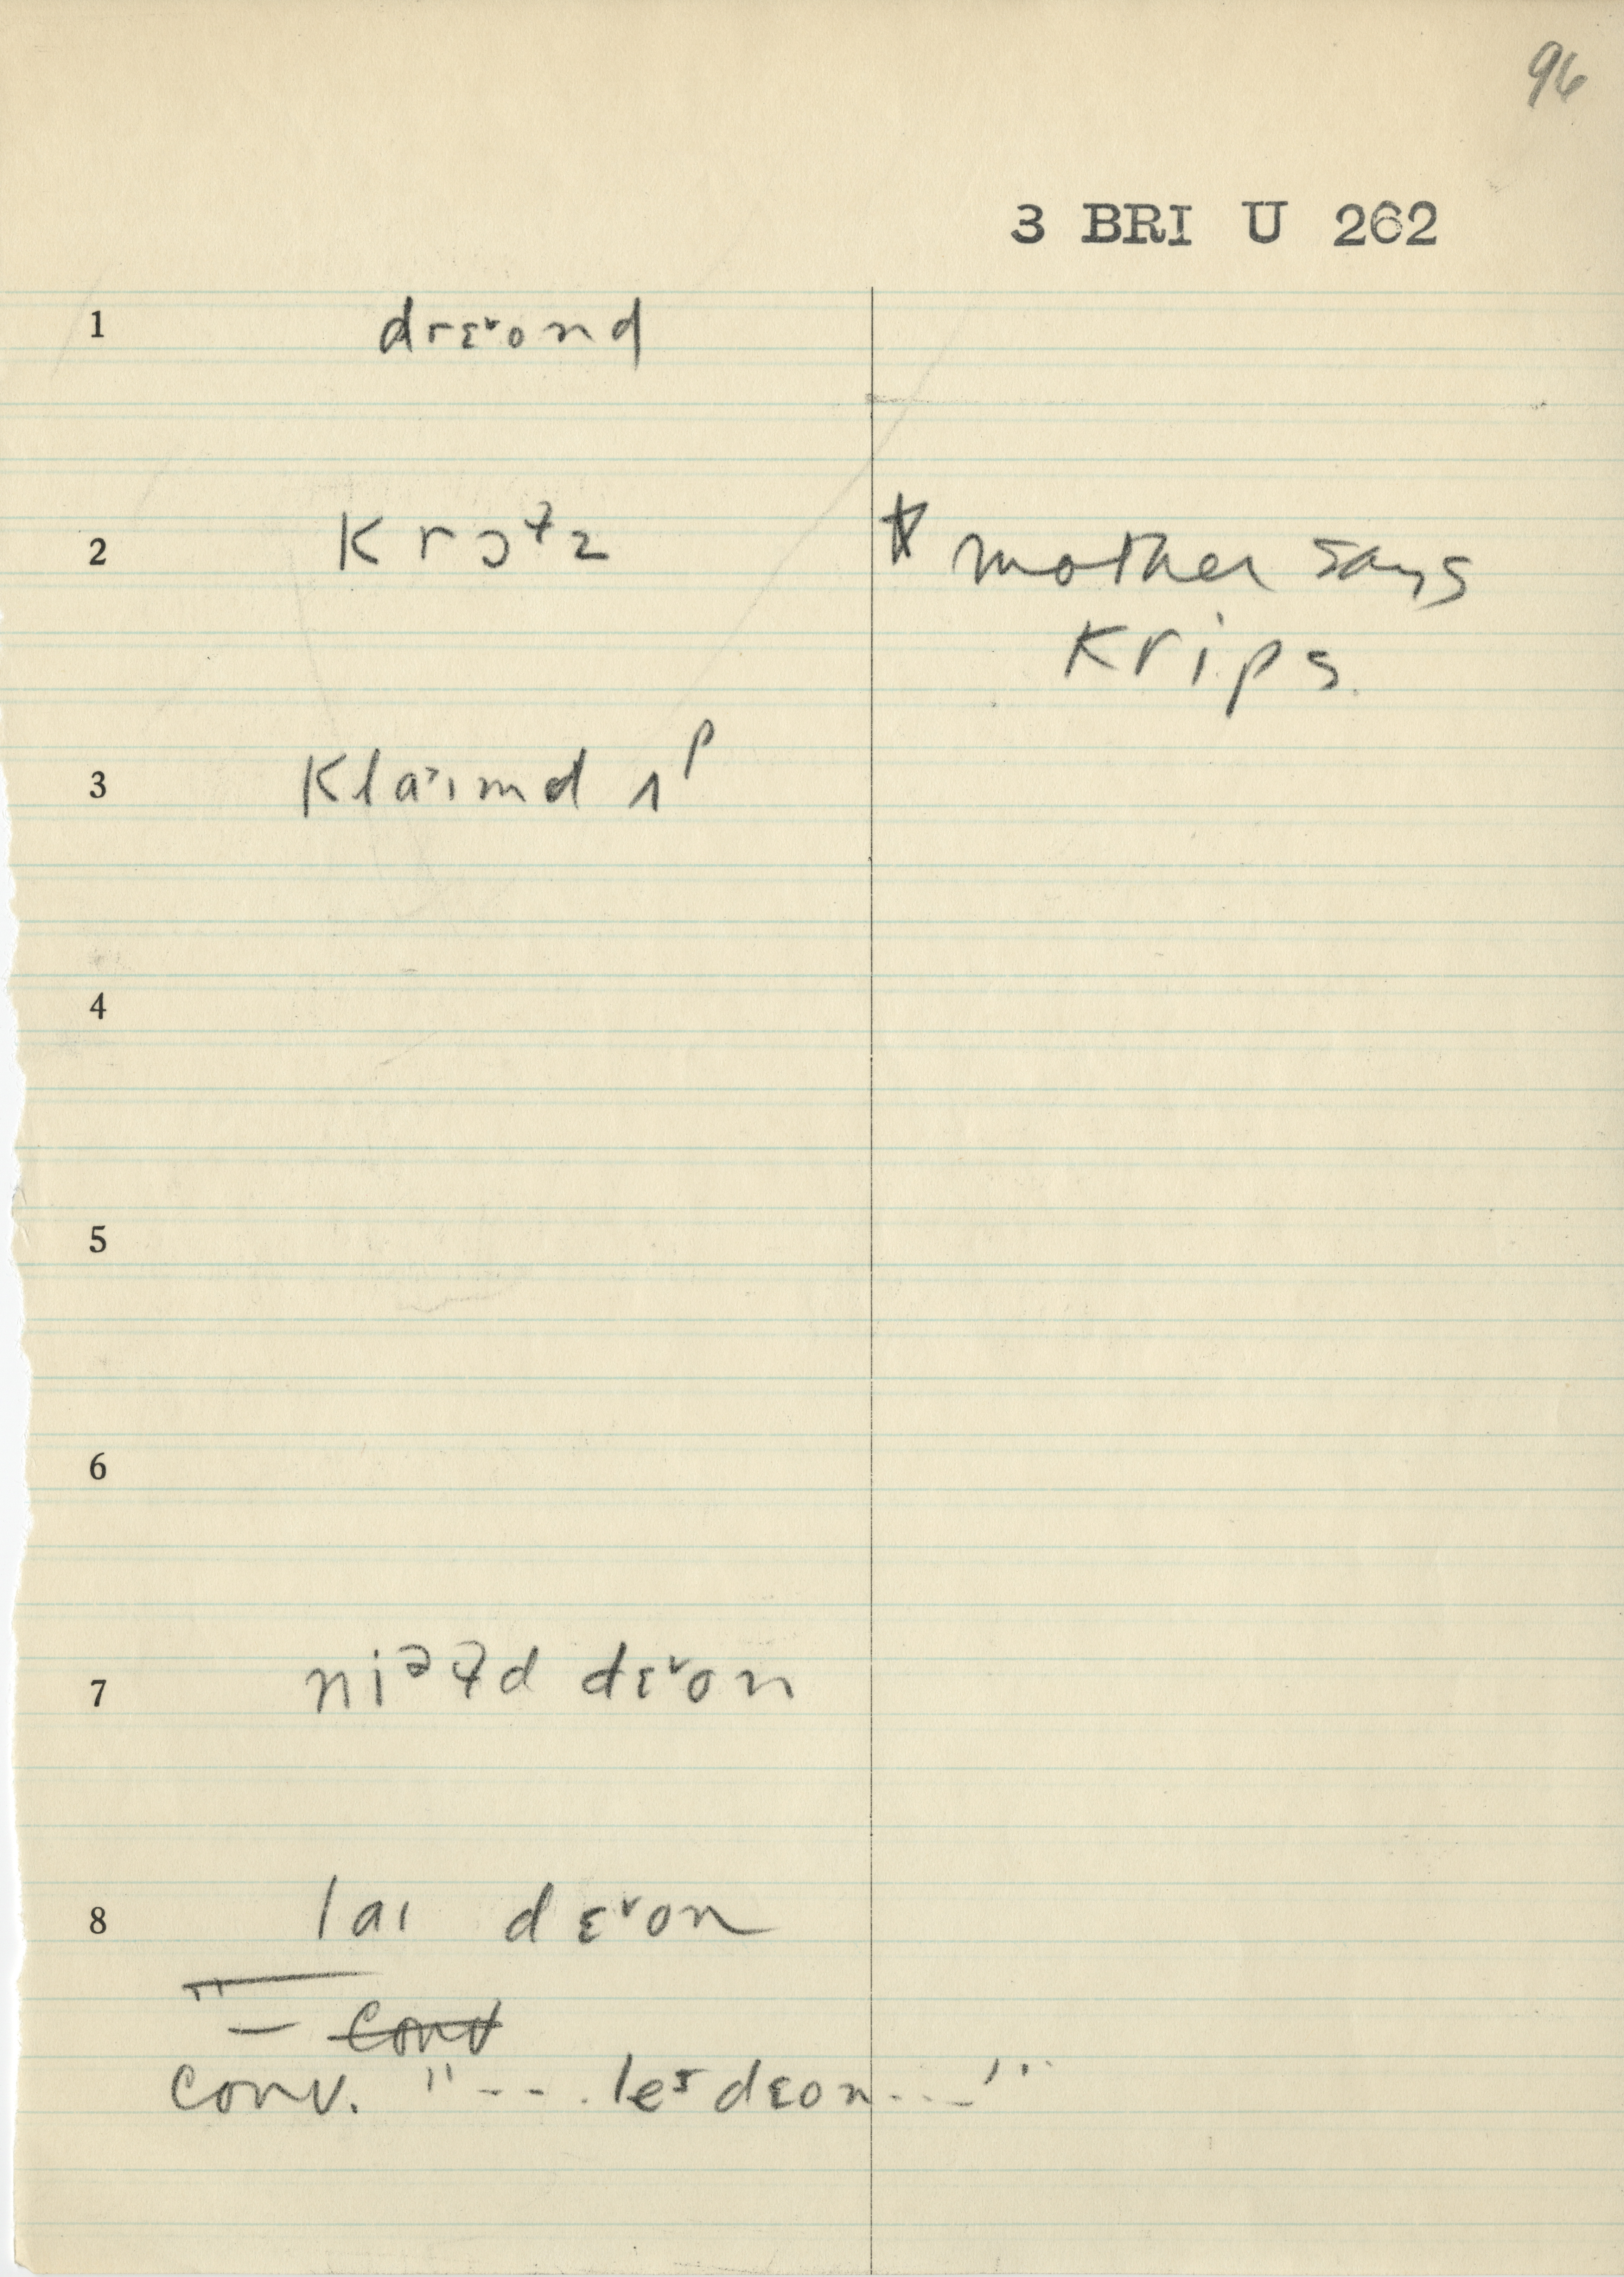 96
3 BRI U 262
1 drɛᵛond
2 Krɔɬz * mother says
Krips.
3 Kla˃ımd ʌᵖ
4
5
6
7 niᵊɬd dɛᵛon
8 laı dɛᵛon
— conv
conv. "--. leˢdɛon..-"